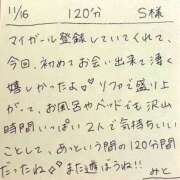 11/16 120分 S様
マイガール登録していてくれて、
今回、初めてお会い出来て凄く
嬉しかったよ♡ ソファで盛り上
がって、お風呂やベッドでも沢山
時間いっぱい2人で気持ちいい
ことして、あっという間の120分間
だったね♡ また遊ぼうね!!
みと